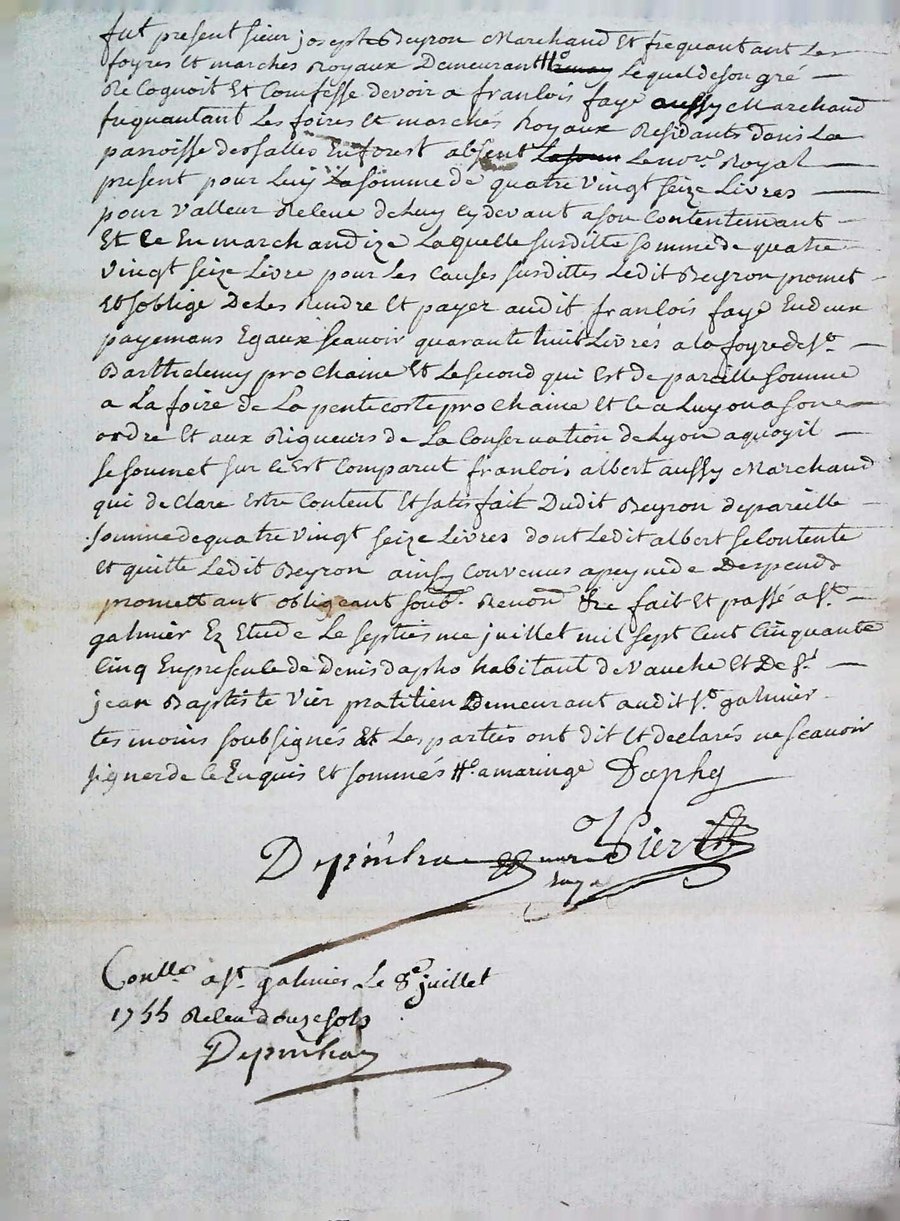 fut present sieur joseph Beyron Marchand et frequantant Les
foyres et marches Royaux Demeurant Lequel de son gré
Recognoit Et Comfesse devoir a francois faye aussy Marchand
frequantant Les foires Et marchés Royaux Residants dans La
parroisse de salles En forest absent Le nore. Royal
present pour Luy La somme de quatre vingt seize Livres
pour valleur Receue de Luy cy devant a son Contentemant
Et ce En marchandize Laquelle susditte somme de quatre
vingt seize Livre pour Les Causes susdittes Ledit Beyron promet
Et soblige De Les Rendre Et payer audit francois faye En deux
payemans Egaux scavoir quarante huit Livres a la foyre de St.
Barthelemy prochaine Et Le second qui Est de pareille somme
a La foire de La pentecoste prochaine et ce a Luy ou a son
ordre Et aux Rigueurs de La Conservation de Lyon a quoy il
se soumet sur ce Est Comparut francois albert aussy Marchand
qui declare Estre Content Et satisfait Dudit Beyron de pareille
somme de quatre vingt seize Livres dont Ledit albert se Contente
Et quitte Ledit Beyron ainsy Convenus a peyne de Despends
promettant obligeant soub. Renon. &c fait Et passé a St.
galmier Ez Etude Le septiesme juillet mil sept Cent Cinquante
Cinq En presence de Denis Dapho habitant de vauche Et De Sr.
jean Baptiste vier pratitien Demeurant audit St. galmier
tesmoins soubsignés Et Les parties ont dit Et declarés ne scavoir
signer de ce Enquis Et sommés amaringe Daphy
Vier
Conlle. a St. galmier Le 8e juillet
1755 Receu douze sols